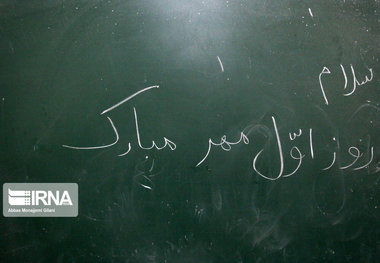 سلام
روز اوّل مهر مبارک
IRNA
Abbas Monajemi Gilani